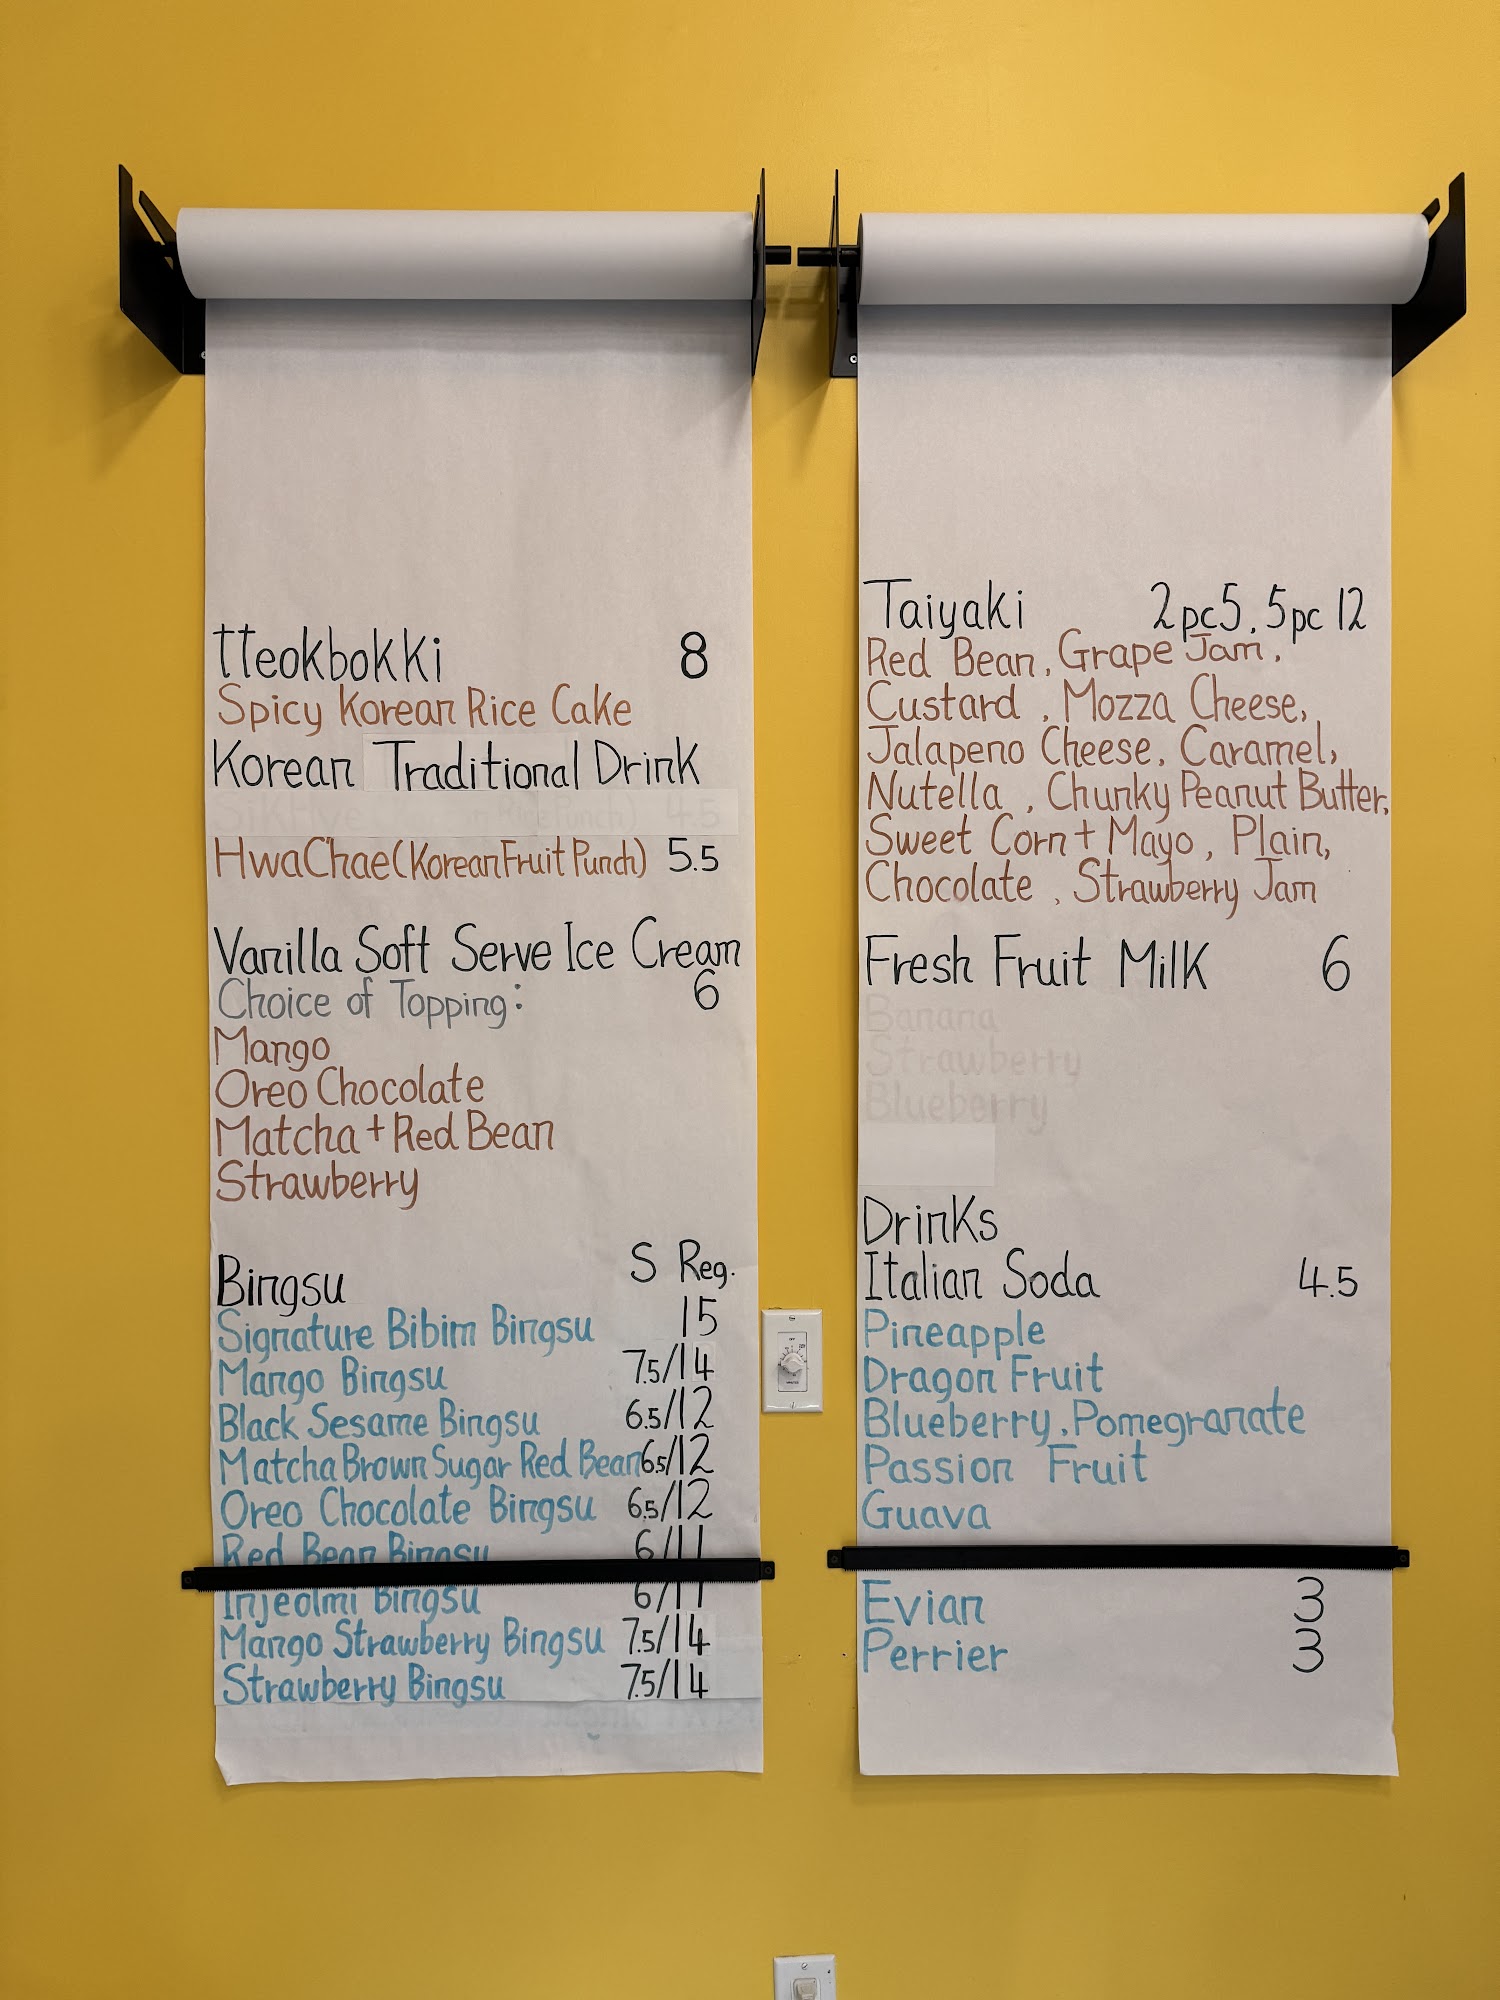 tteokbokki 8
Spicy Korean Rice Cake
Korean Traditional Drink
HwaChae(Korean Fruit Punch) 5.5
Vanilla Soft Serve Ice Cream
Choice of Topping: 6
Mango
Oreo Chocolate
Matcha + Red Bean
Strawberry
Bingsu S Reg.
Signature Bibim Bingsu 15
Mango Bingsu 7.5/14
Black Sesame Bingsu 6.5/12
Matcha Brown Sugar Red Bean 6.5/12
Oreo Chocolate Bingsu 6.5/12
Red Bean Bingsu 6/11
Injeolmi Bingsu 6/11
Mango Strawberry Bingsu 7.5/14
Strawberry Bingsu 7.5/14
Taiyaki 2pc 5, 5pc 12
Red Bean, Grape Jam,
Custard, Mozza Cheese,
Jalapeno Cheese, Caramel,
Nutella, Chunky Peanut Butter,
Sweet Corn + Mayo, Plain,
Chocolate, Strawberry Jam
Fresh Fruit Milk 6
Banana
Strawberry
Blueberry
Drinks
Italian Soda 4.5
Pineapple
Dragon Fruit
Blueberry, Pomegranate
Passion Fruit
Guava
Evian 3
Perrier 3